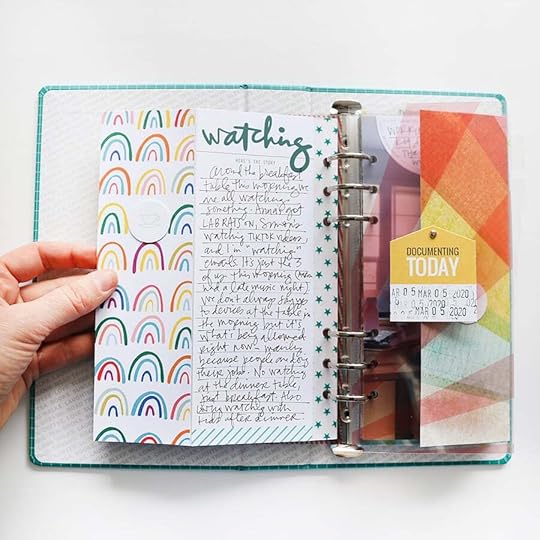 watching
HERE'S THE STORY
Around the breakfast
table this morning we
are all watching
something. Anna's got
LAB RATS on, Simon's
watching TIKTOK videos
and I'm "watching"
emails. It's just the 3
of us this morning (Dan
had a late music night)
We don't always
to devices at the table in
the morning but it's
what's being allowed
right now - mainly
because people
their job. No watching
at the dinner table,
just breakfast. Also
watching with
kids after dinner.
DOCUMENTING
TODAY
AR 05 MAR 05 2020
05 MAR 05 2020
MAR 05 2020